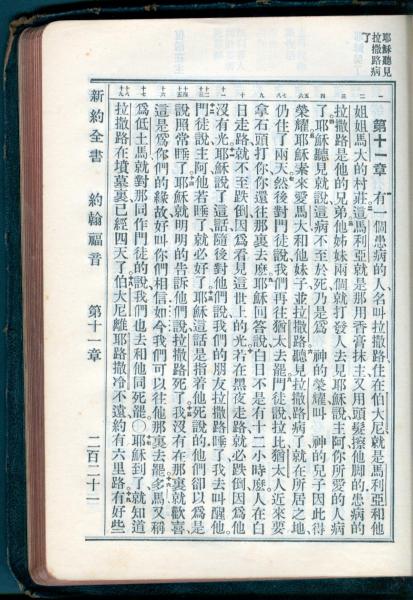 耶穌聽見
拉撒路病
了
第十一章　有一個患病的人、名叫拉撒路住在伯大尼就是馬利亞和他
姐姐馬大的村莊這馬利亞就是那用香膏抹主又用頭髮擦他脚的患病的
拉撒路是他的兄弟他姊妹兩個就打發人去見耶穌說主阿你所愛的人病
了耶穌聽見就說這病不至於死乃是爲　神的榮耀叫　神的兒子因此得
榮耀耶穌素來愛馬大和他妹子並拉撒路聽見拉撒路病了就在所居之地、
仍住了兩天然後對門徒說我們再往猶太去罷門徒說拉比猶太人近來要
拿石頭打你你還往那裏去麽耶穌回答說白日不是有十二小時麽人在白
日走路就不至跌倒因爲看見這世上的光若在黑夜走路就必跌倒因爲他
沒有光耶穌說了這話隨後對他們說我們的朋友拉撒路睡了我去叫醒他
門徒說主阿他若睡了就必好了耶穌這話是指着他死說的他們卻以爲是
說照常睡了耶穌就明明的告訴他們說拉撒路死了我沒有在那裏就歡喜
這是爲你們的緣故好叫你們相信如今我們可以往他那裏去罷多馬又稱
爲低土馬就對那同作門徒的說我們也去和他同死罷〇耶穌到了就知道
拉撒路在墳墓裏已經四天了伯大尼離耶路撒冷不遠約有六里路有好些
新約全書　約翰福音　第十一章　二百二十一